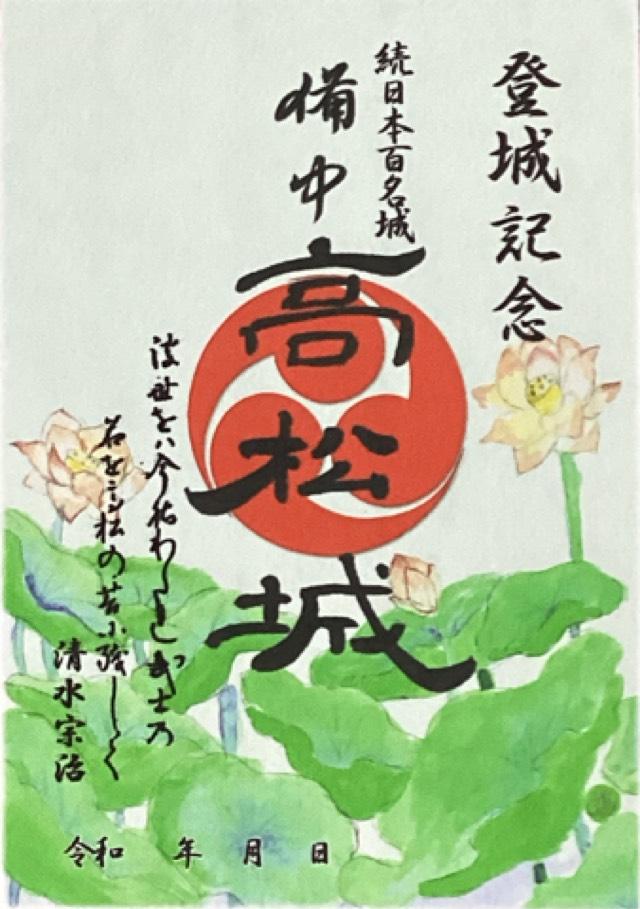 登城記念
続日本百名城
備中
高松城
浮世をハ今社わたれ武士乃
名を高松の苔に残して
清水宗治
令和　年　月　日